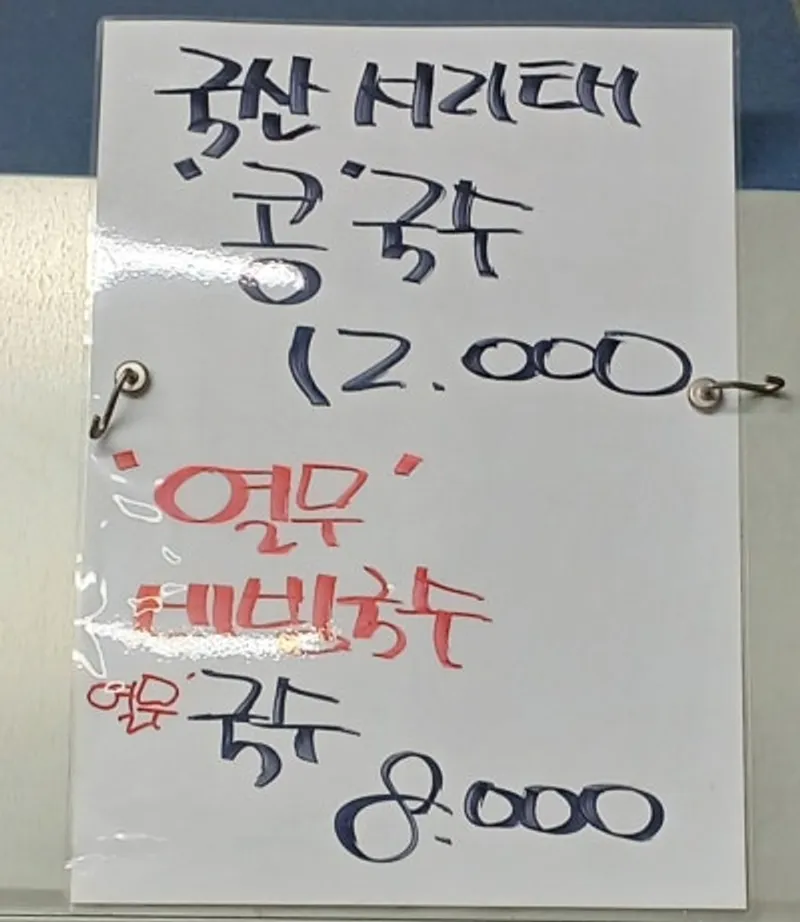 국산 서리태
"콩"국수
12.000
"열무"
비빔국수
열무 국수
8.000